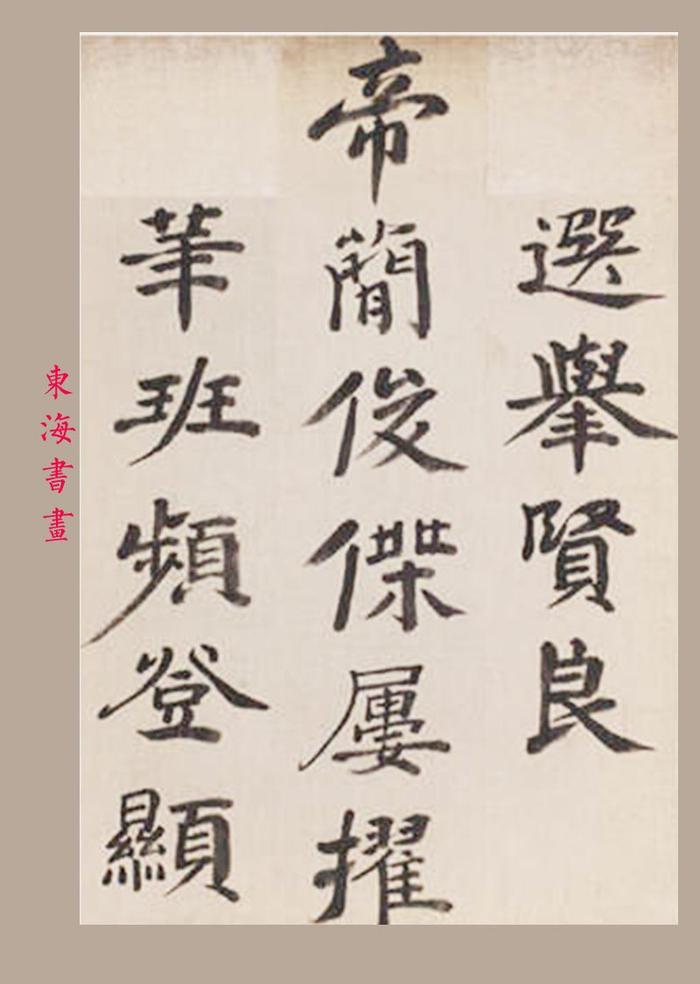 選舉賢良
帝簡俊傑屢擢
華班頻登顯
東海書畫